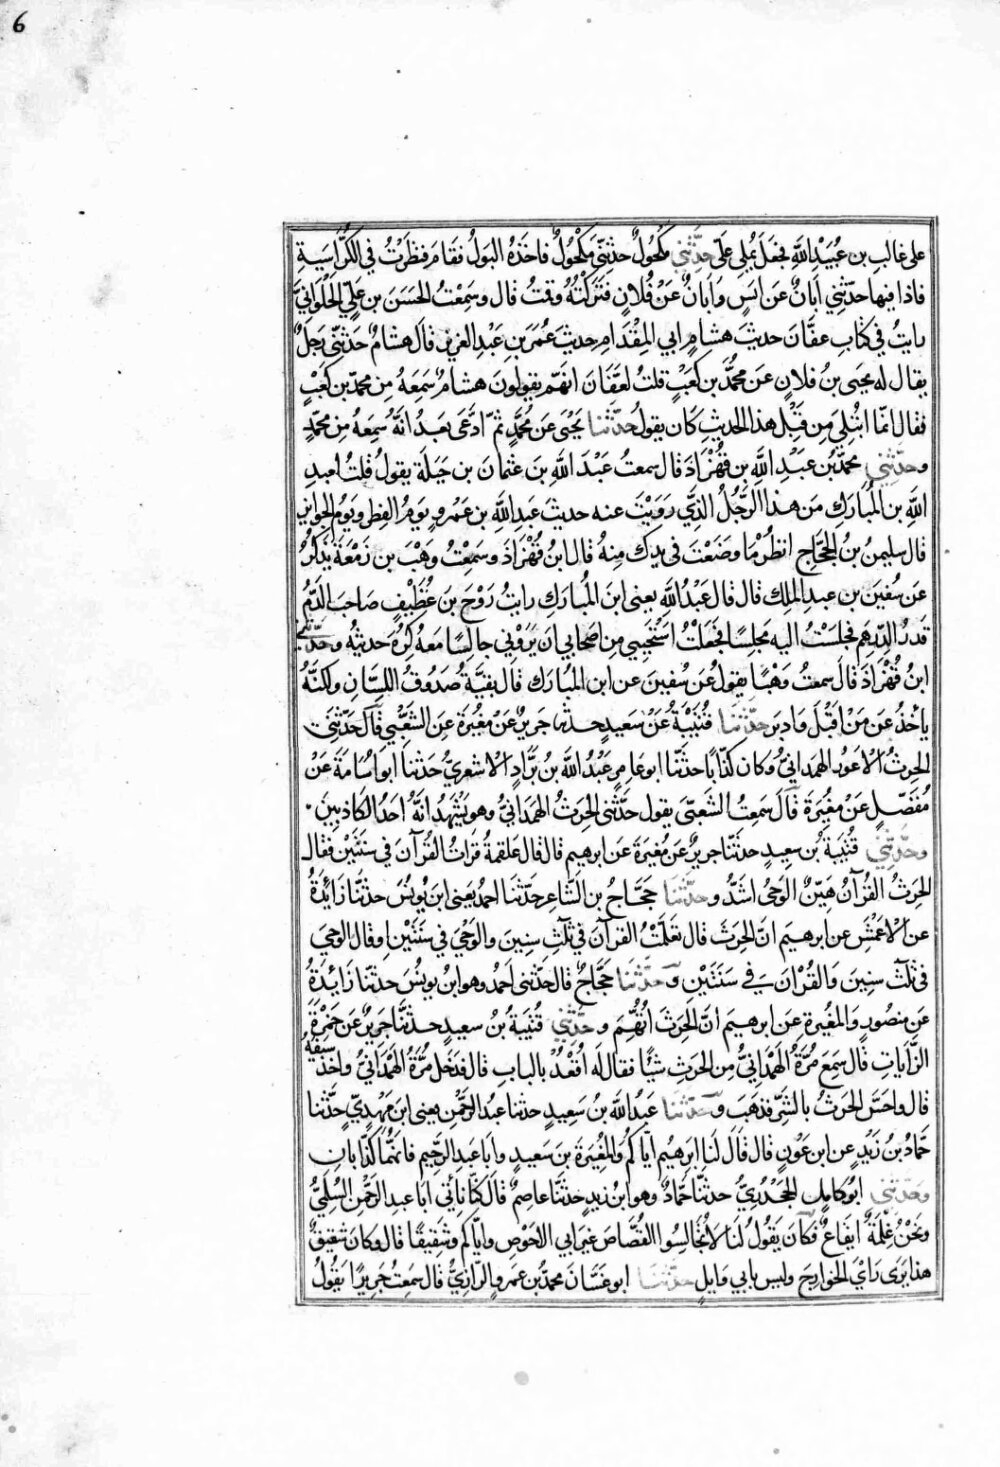 6
على غالب بن عُبَيْدِ اللّٰهِ فجَعَلَ يُملِي عَلَىَّ حدَّثنِي مَكْحُولٌ حدثنِي مَكْحُولٌ فاخذهُ البَولُ فقام فنظَرْتُ فى الكُرَّاسَةِ
فاذا فيها حدّثني اَبانٌ عن انسٍ وَاَبانٌ عَنْ فُلانٍ فَتَرَكْتُهُ وقمتُ قال وسَمِعْتُ الحَسَنَ بن علِيٍّ الحُلوَانِيَّ
رايتُ فى كتابِ عفّانَ حديثَ هشامٍ ابي المِقْدَامِ حديثَ عُمَرَ بنِ عَبْدِ العزيزِ قالَ هشامٌ حَدّثَنِي رَجلٌ
يقال له يحيى بنُ فلانٍ عَن محمَّد بن كَعْبٍ قلتُ لعَفَّانَ انهّم يقولونَ هشامٌ سَمَعَهُ مِن محمّد بن كَعْبٍ
فقال انما ابتُلِيَ مِن قَبْلِ هذا الحديثِ كان يقولُ حدّثنا يَحْيَى عن محُمَّدٍ ثمّ ادَّعَى بعَدُ انَّهُ سَمِعَهُ مِن محمّدٍ
وحدّثنِي محمّدُ بن عبَدْ اللّهِ بن قُهْزاذَ قال سمعتُ عَبْدَ اللّهِ بنَ عُثمانَ بن جَبَلَة يقولُ قلتُ لعبدِ
اللّهِ بن المُبَارَكِ مَن هذا الرَّجُلُ الذِّي رَوَيْتَ عنه حديث عَبدِ اللّهِ بن عَمْروٍ يَومُ الفِطْرِ ويَومُ الجوايزِ
قالَ سليمنُ بنُ الحَجَّاجِ انظُرْ مَا وضَعْتَ فى يدِك مِنهُ قال ابنُ قُهْزاذ وسمِعْتُ وَهْبَ بن زَمْعَة يَذكُرُ
عَن سُفْينَ بن عبدِ الملكِ قال قال عَبْدُ اللّه يعنى ابنَ المُبارَكِ رايتُ رَوْحَ بن غُطَيْفٍ صاحبَ الدَّمُ
قدرُ الدِّرهَمِ فجلسْتُ اليه مَجلِسًا فجَعَلْتُ اَسْتَحيِي مِن اصحابي ان يَروْني جالِسًا معَهُ كُرْهَ حَديثهِ وحَدّثَنِي
ابنُ قُهْزاذَ قالَ سمعتُ وَهْبًا يقولُ عن سُفينَ عن ابنِ المُبارَك قال بقيَّةُ صَدُوقُ اللّسَانِ ولكنَّهُ
ياخُذُ عن مَن اَقْبَلَ وادبَرَ حدّثنا قُتَيْبَةُ عَنْ سَعيدٍ حدثنا جريرٌ عَنْ مُغيرَةَ عَنِ الشَّعْبِّي قالَ حَدّثَنِى
الحرِثُ الاَعوَرُ الهمدَانِيُّ وكان كذّابًا حدّثنا ابو عامرٍ عَبْدُ اللّه بنُ بَرَّادٍ الاشعريُّ حَدثنا ابو اسَامَةَ عَنْ
مُفَضّلٍ عَنْ مغُيرَةَ قالَ سَمِعتُ الشَّعبيَّ يقول حدّثني الحرثُ الهمدانيُّ وهو يَشْهَدُ انَّهُ احَدُ الكاذبِينَ
وحدّثنِي قُتَيبةُ بن سعيدٍ حدثنّا جريرٌ عن مُغيرةَ عن ابرهيم قال قال عَلقمةُ قرأتُ القُرآنَ فى سَنَتَيْنِ فقال
الحرِثُ القُرآنُ هَيّنٌ الوَحىُ اشَدُّ وحدّثنا حَجَّاجُ بن الشَّاعِرِ حَدّثنا احمدُ يعنى ابن يُونُسَ حدثنّا زَائِدَةُ
عن الاعَمشِ عن ابرهيمَ انّ الحرِثَ قال تَعَلّمْتُ القرآنَ فى ثلاثِ سِنِينَ والوَحْيَ في سَنَتَيْنِ او قال الوَحيَ
فى ثلاثِ سِنينَ والقُرْآنَ في سَنَتَيْنِ وحدّثنا حَجّاجٌ قال حَدّثني اَحمدُ وهو ابنُ يونُسَ حدثنا زَائِدَةُ
عن منصورٍ والمُغيرة عن ابرهيمَ انّ الحَرِثَ اتُّهِمَ وحدّثنِي قُتَيْبَةُ بنُ سعيدٍ حدّثنّا جريرٌ عن حَمْزةَ
الزّيَّاتِ قالَ سَمِعَ مُرَّةُ الهَمْدَانِيُّ مِن الحرِثِ شيئًا فقال له اُقْعُدْ بالبابِ قال فدخلَ مُرّةُ الهمدَانيُّ واخذَ سيفَهُ
قال واحسَّ الحَرِثُ بالشرِّ فذهَبَ وحدّثنا عُبيدُ اللّه بنُ سَعِيدٍ حدثنا عبدُ الرّحمٰنِ يعنى ابن مَهْدِيٍّ حدَّثنا
حَمّادُ بن زَيْدٍ عن ابنِ عَوْنٍ قال قالَ لَنا ابرهيمُ ايّاكم والمُغيرةَ بنَ سَعيدٍ وابا عبد الرّحيمِ فانهّما كَذّابانِ
وحَدّثنِي ابوُ كاملٍ الجَحْدرِيُّ حدثنّا حَمّادٌ وهو ابنُ زيدٍ حدّثنا عاصمٌ قالَ كُنّا نأتي ابا عبدِ الرّحمٰنِ السُّلَمِيَّ
ونَحْنُ غِلمَةٌ ايَفَاعٌ فَكَانَ يَقُولُ لَنا لا تُجالِسُوا القُصّاصَ غيرَ ابي الاحَوصِ واياّكم وَشَقِيقًا قال وكان شقيقٌ
هذا يَرَى رايَ الخوارِج وليس بابي وايلٍ حدّثنا ابو غسَّانَ محمّدُ بن عَمروٍ الرّازِيُّ قال سَمِعتُ جَرِيرًا يَقُولُ